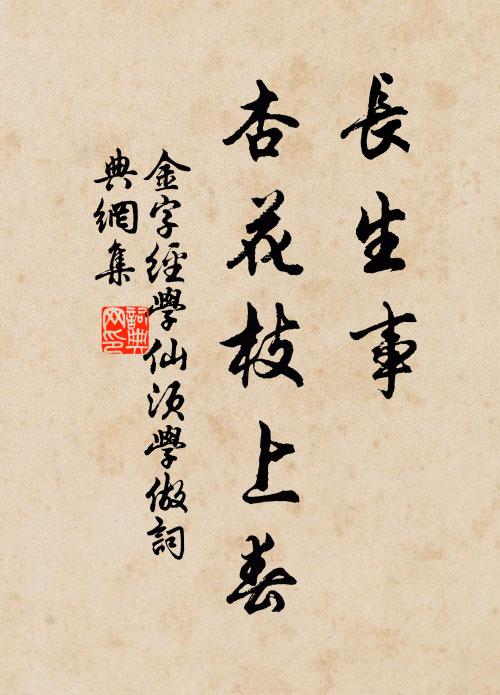 長生事
杏花枝上春
金字經學仙須學做詞
典網集
詞典
网印